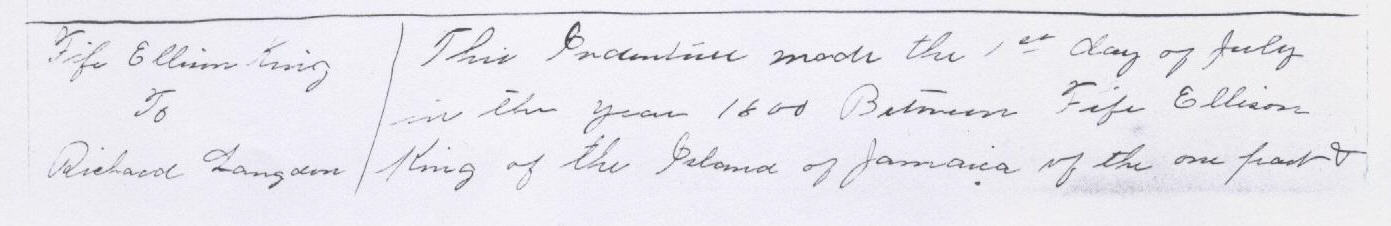 Fife Ellison King
To
Richard Langdon
This Indenture made the 1st day of July
in the year 1800 Between Fife Ellison
King of the Island of Jamaica of the one part &